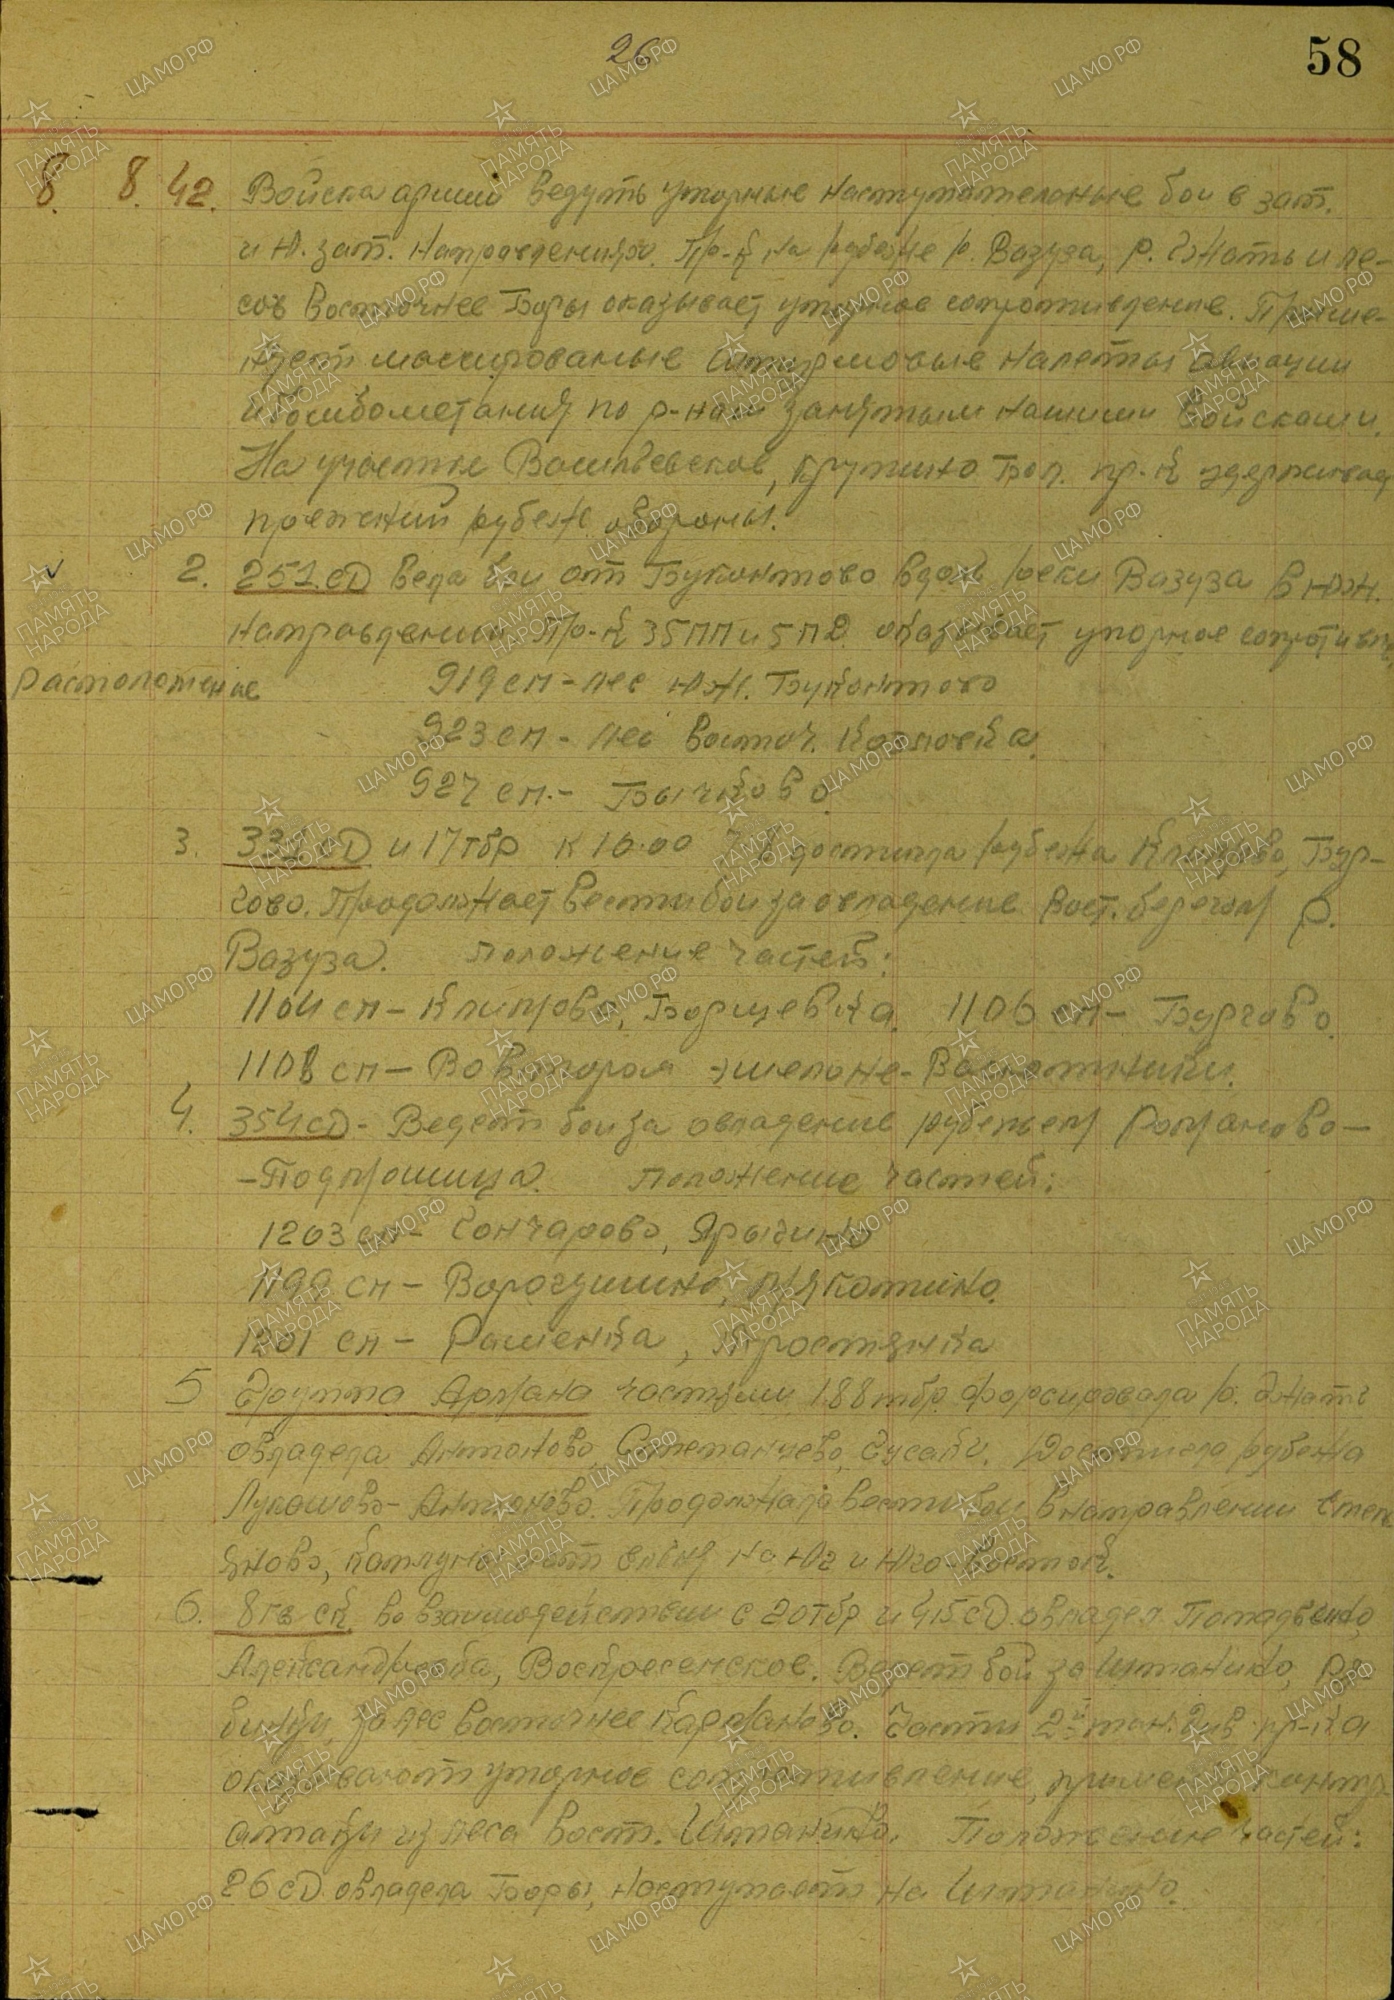 26
58
8. 8. 42. Войска армии ведуть упорные наступательные бои в зап.
и Ю. зап. направлениях. Пр-к на рубеже р. Вазуза, р. Гжать и ле-
сов восточнее Боры оказывает упорное сопротивление. Приме-
няет массированые штурмовые налеты авиации
и бомбометания по р-нам занятым нашими войсками.
На участке Васильевское, Крутино Бол. пр-к удерживает
прежний рубеж обороны.
2. 251 СД вела бои от Буконтово вдоль реки Вазуза в Юж.
направлении. Пр-к 35 ПП и 5 ПД оказывает упорное сопротивл
Расположение 919 сп - лес юж. Буконтово
923 сп - лес восточ. Козловка.
927 сп. - Бычково.
3. 331 СД и 17 тбр к 16.00 7.8 достигла рубежа Климово, Бур-
гово. Продолжает вести бои за овладение вост. берегом р.
Вазуза. Положение частей:
1104 сп - Климово, Борщевка. 1106 сп - Бургово.
1108 сп - Во втором эшелоне -
4. 354 СД - Ведет бои за овладение рубежем Романово -
- Подъяблонька. Положение частей:
1203 сп - Гончарово, Ярыгино
1199 сп - Ворогушино, Мякотино.
1201 сп - Раменка, Тростянка
5 Группа Армана частями 188 тбр. форсировала р. Гжать
овладела Антоново, Степанцево, Чусаби. Достигла рубежа
Лукошово - Антоново. Продолжала вести бои в направлении Степ
яново, на Юг и Юго-восток.
6. 8 гв ск во взаимодействии с 20 тбр и 415 СД овладел
Александровка, Воскресенское. Ведет бой за Штанино, Ря-
бинки, за лес восточнее Карманово. Части 2й тан. див. пр-ка
оказывают упорное сопротивление, применяя контр
атаки из леса вост. Штанино. Положение частей:
26 СД овладела Боры, наступает на Штанино.
ЦА МО РФ
ПАМЯТЬ НАРОДА